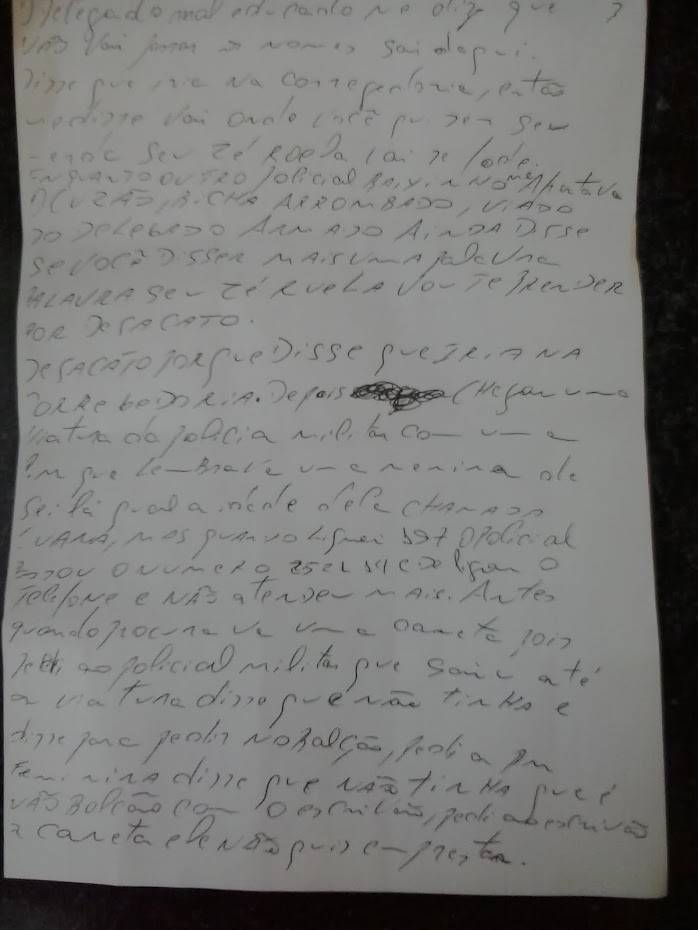 Delegado mal educado me diz que 3
não vai passar os nomes sai daqui.
Disse que iria na corregedoria, então
me disse vai onde você quiser seu
seu Zé Roela vai se foder.
ENQUANTO OUTRO POLICIAL BAIXINHO me Apontava
CUZÃO, BICHA ARROMBADO, VIADO
DO DELEGADO ARMADO AINDA DISSE
SE VOCÊ DISSER MAIS UMA palavra
PALAVRA SEU ZÉ RUELA VOU TE PRENDER
POR DESACATO.
DESACATO PORQUE DISSE que IRIA NA
CORREGEDORIA. Depois CHegou uma
viatura da policia militar com uma
PM que lembrava uma menina de
sei lá qual a idade dela CHAMADA
mas quando liguei 197 O Policial
O NUMERO desligou O
Telefone e NÃO atendeu mais. Antes
quando procurava uma caneta pois
pedi ao policial militar que saiu até
a viatura disse que não tinha e
disse para pedir no Balcão, pedi a PM
Feminina disse que NÃO TINHA que é
NÃO Balcão com O escrivão, pedi ao escrivão
a caneta ele não quis emprestar.